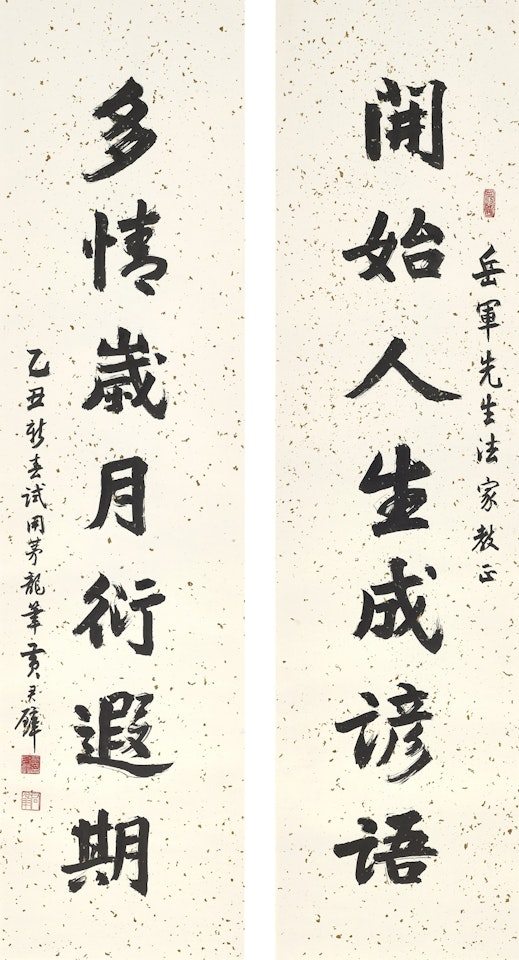 岳軍先生法家教正
開始人生成諺語
多情歲月衍遐期
乙丑新春試用茅龍筆黃君璧